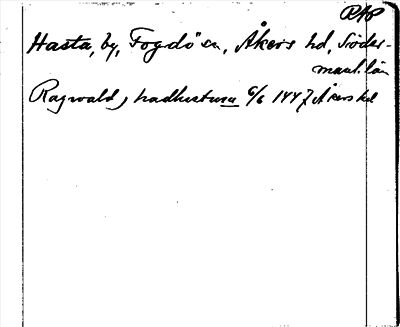 RAP
Hasta, by, Fogdö sn, Åkers hd, Söder-
manl. län
Ragwald j hadhestum 6/6 1447 Åkers hd